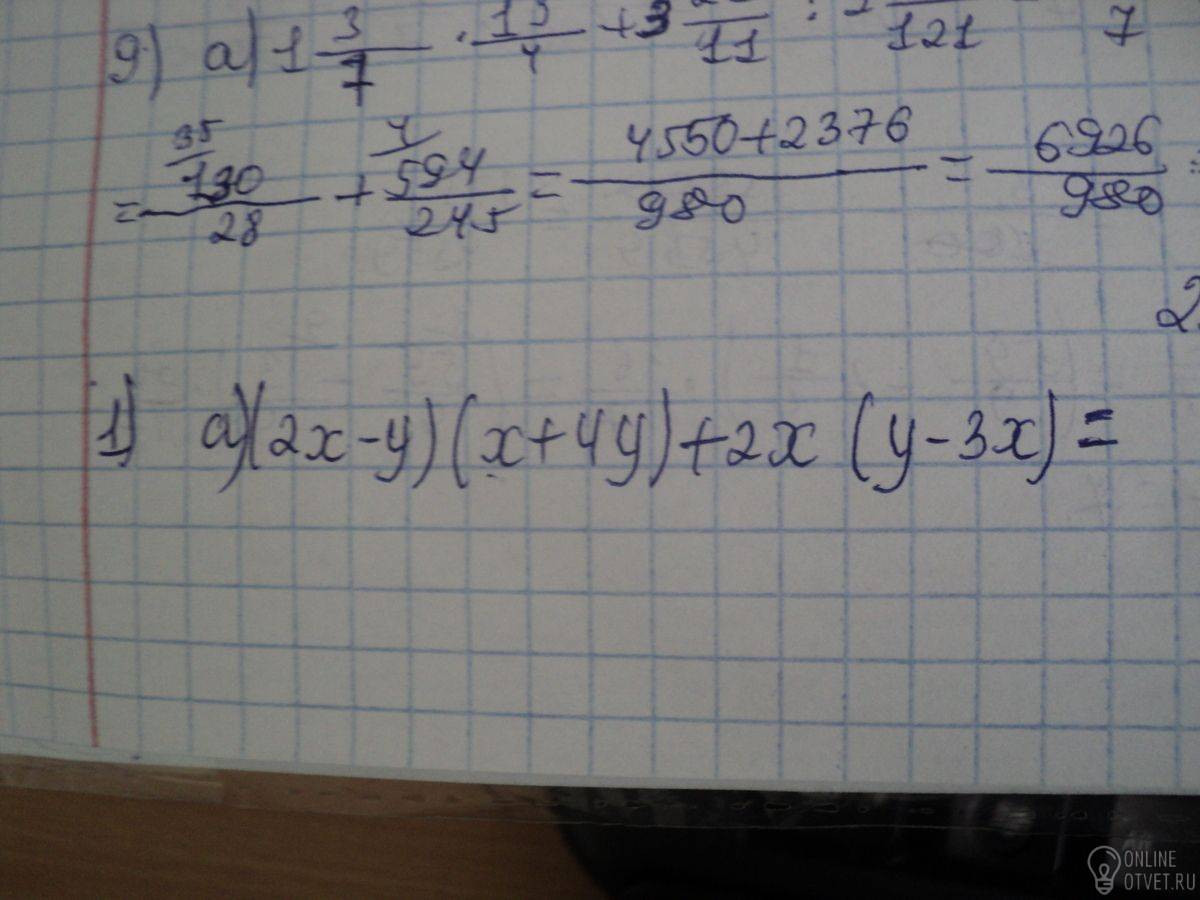 9) а) 1 3/7 · 13/4 + 3 /11 : /121 7
= 130/28 + 594/245 = 4550+2376/980 = 6926/980
35 4
2
1) а) (2x-y)(x+4y)+2x (y-3x) =
ONLINE
OTVET.RU